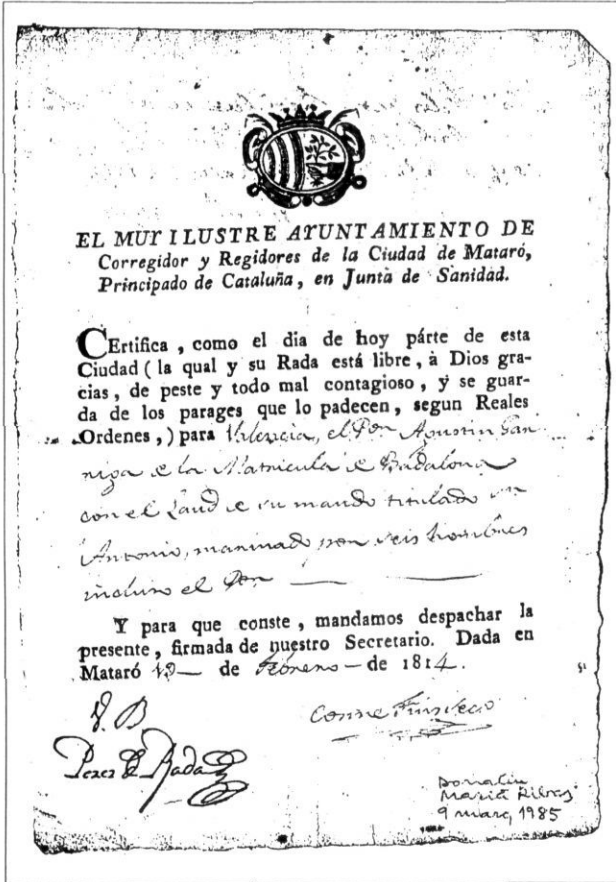 EL MUY ILUSTRE AYUNTAMIENTO DE
Corregidor y Regidores de la Ciudad de Mataró,
Principado de Cataluña, en Junta de Sanidad.
CErtifica, como el dia de hoy párte de esta
Ciudad (la qual y su Rada está libre, à Dios gra-
cias, de peste y todo mal contagioso, y se guar-
da de los parages que lo padecen, segun Reales
Ordenes,) para Valencia, el Pon Agustin
de la Matricula de Badalona
con el Laud de su mando titulado Sn
Antonio, marinado por seis hombres
incluso el Pon
Y para que conste, mandamos despachar la
presente, firmada de nuestro Secretario. Dada en
Mataró 19 — de Febrero — de 1814.
V. B
Perez de Rada
Donatiu
Marià Ribas
9 març, 1985